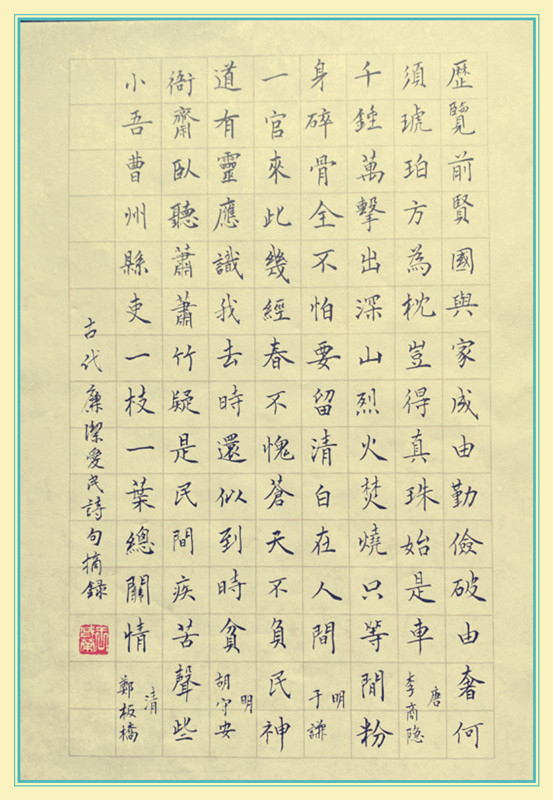 歷覽前賢國與家成由勤儉破由奢何
須琥珀方為枕豈得真珠始是車
唐
李商隐
千錘萬擊出深山烈火焚燒只等閒粉
身碎骨全不怕要留清白在人間
明
于謙
一官來此幾經春不愧蒼天不負民神
道有靈應識我去時還似到時貧
明
胡守安
衙齋臥聽蕭蕭竹疑是民間疾苦聲些
小吾曹州縣吏一枝一葉總關情
清
鄭板橋
古代廉潔愛民詩句摘錄